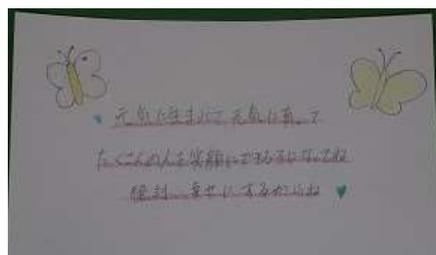 元気に生まれて元気に育って
たくさんの人を笑顔にできる子になってね
絶対、幸せにするからね